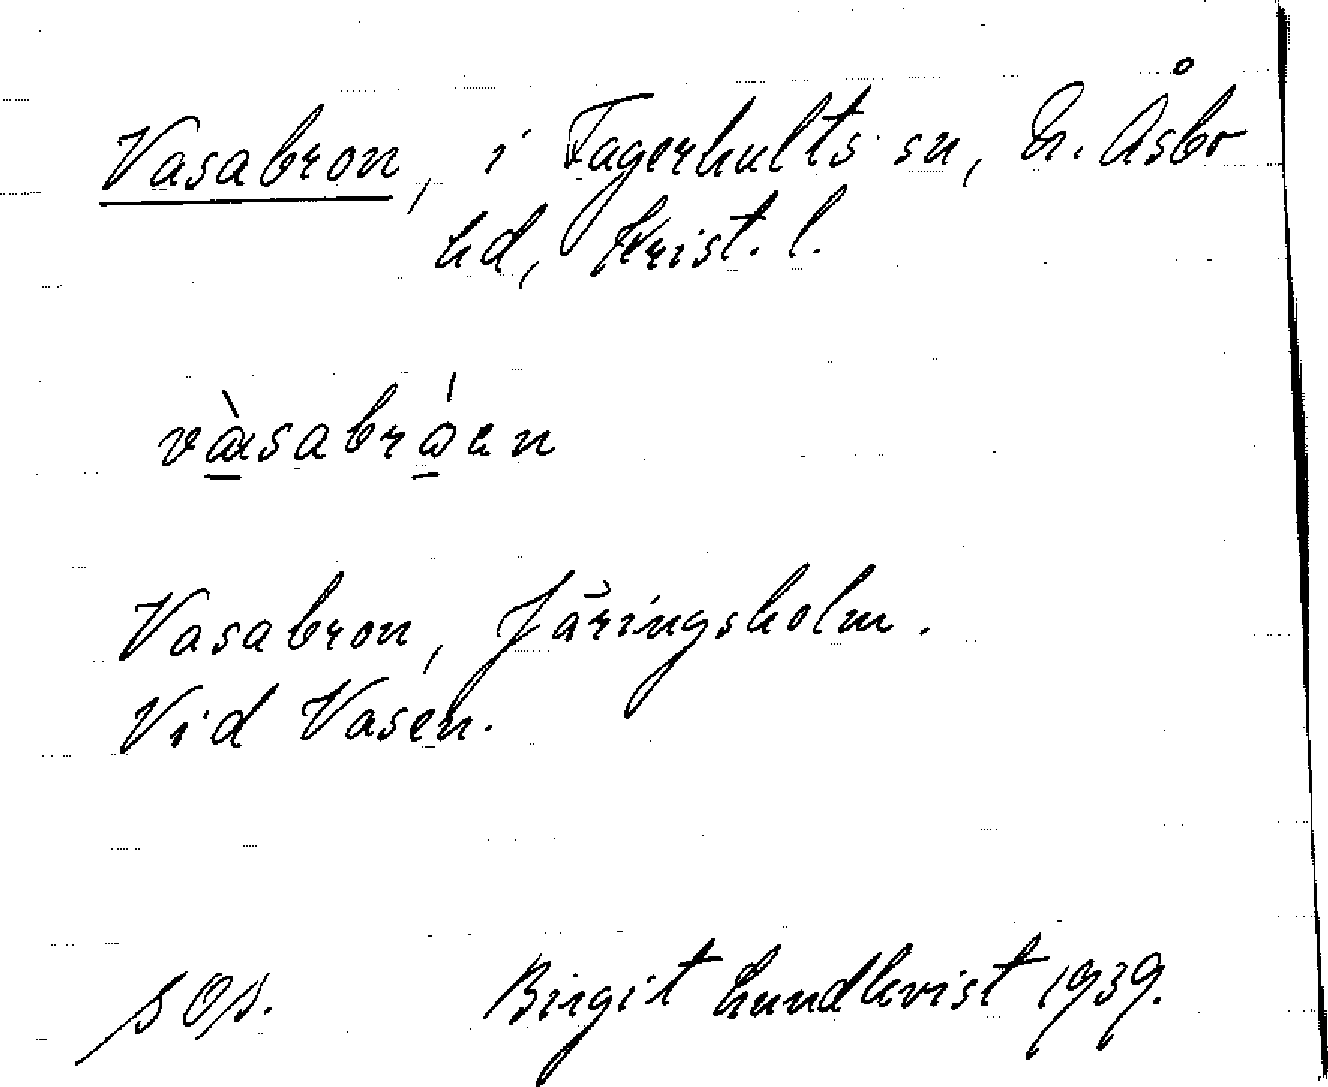 Vasabron, i Fagerhults sn, N. Åsbo
hd, Krist. l.
Vasabron, Järingsholm.
Vid Vasen.
Birgit Lundkvist 1939.